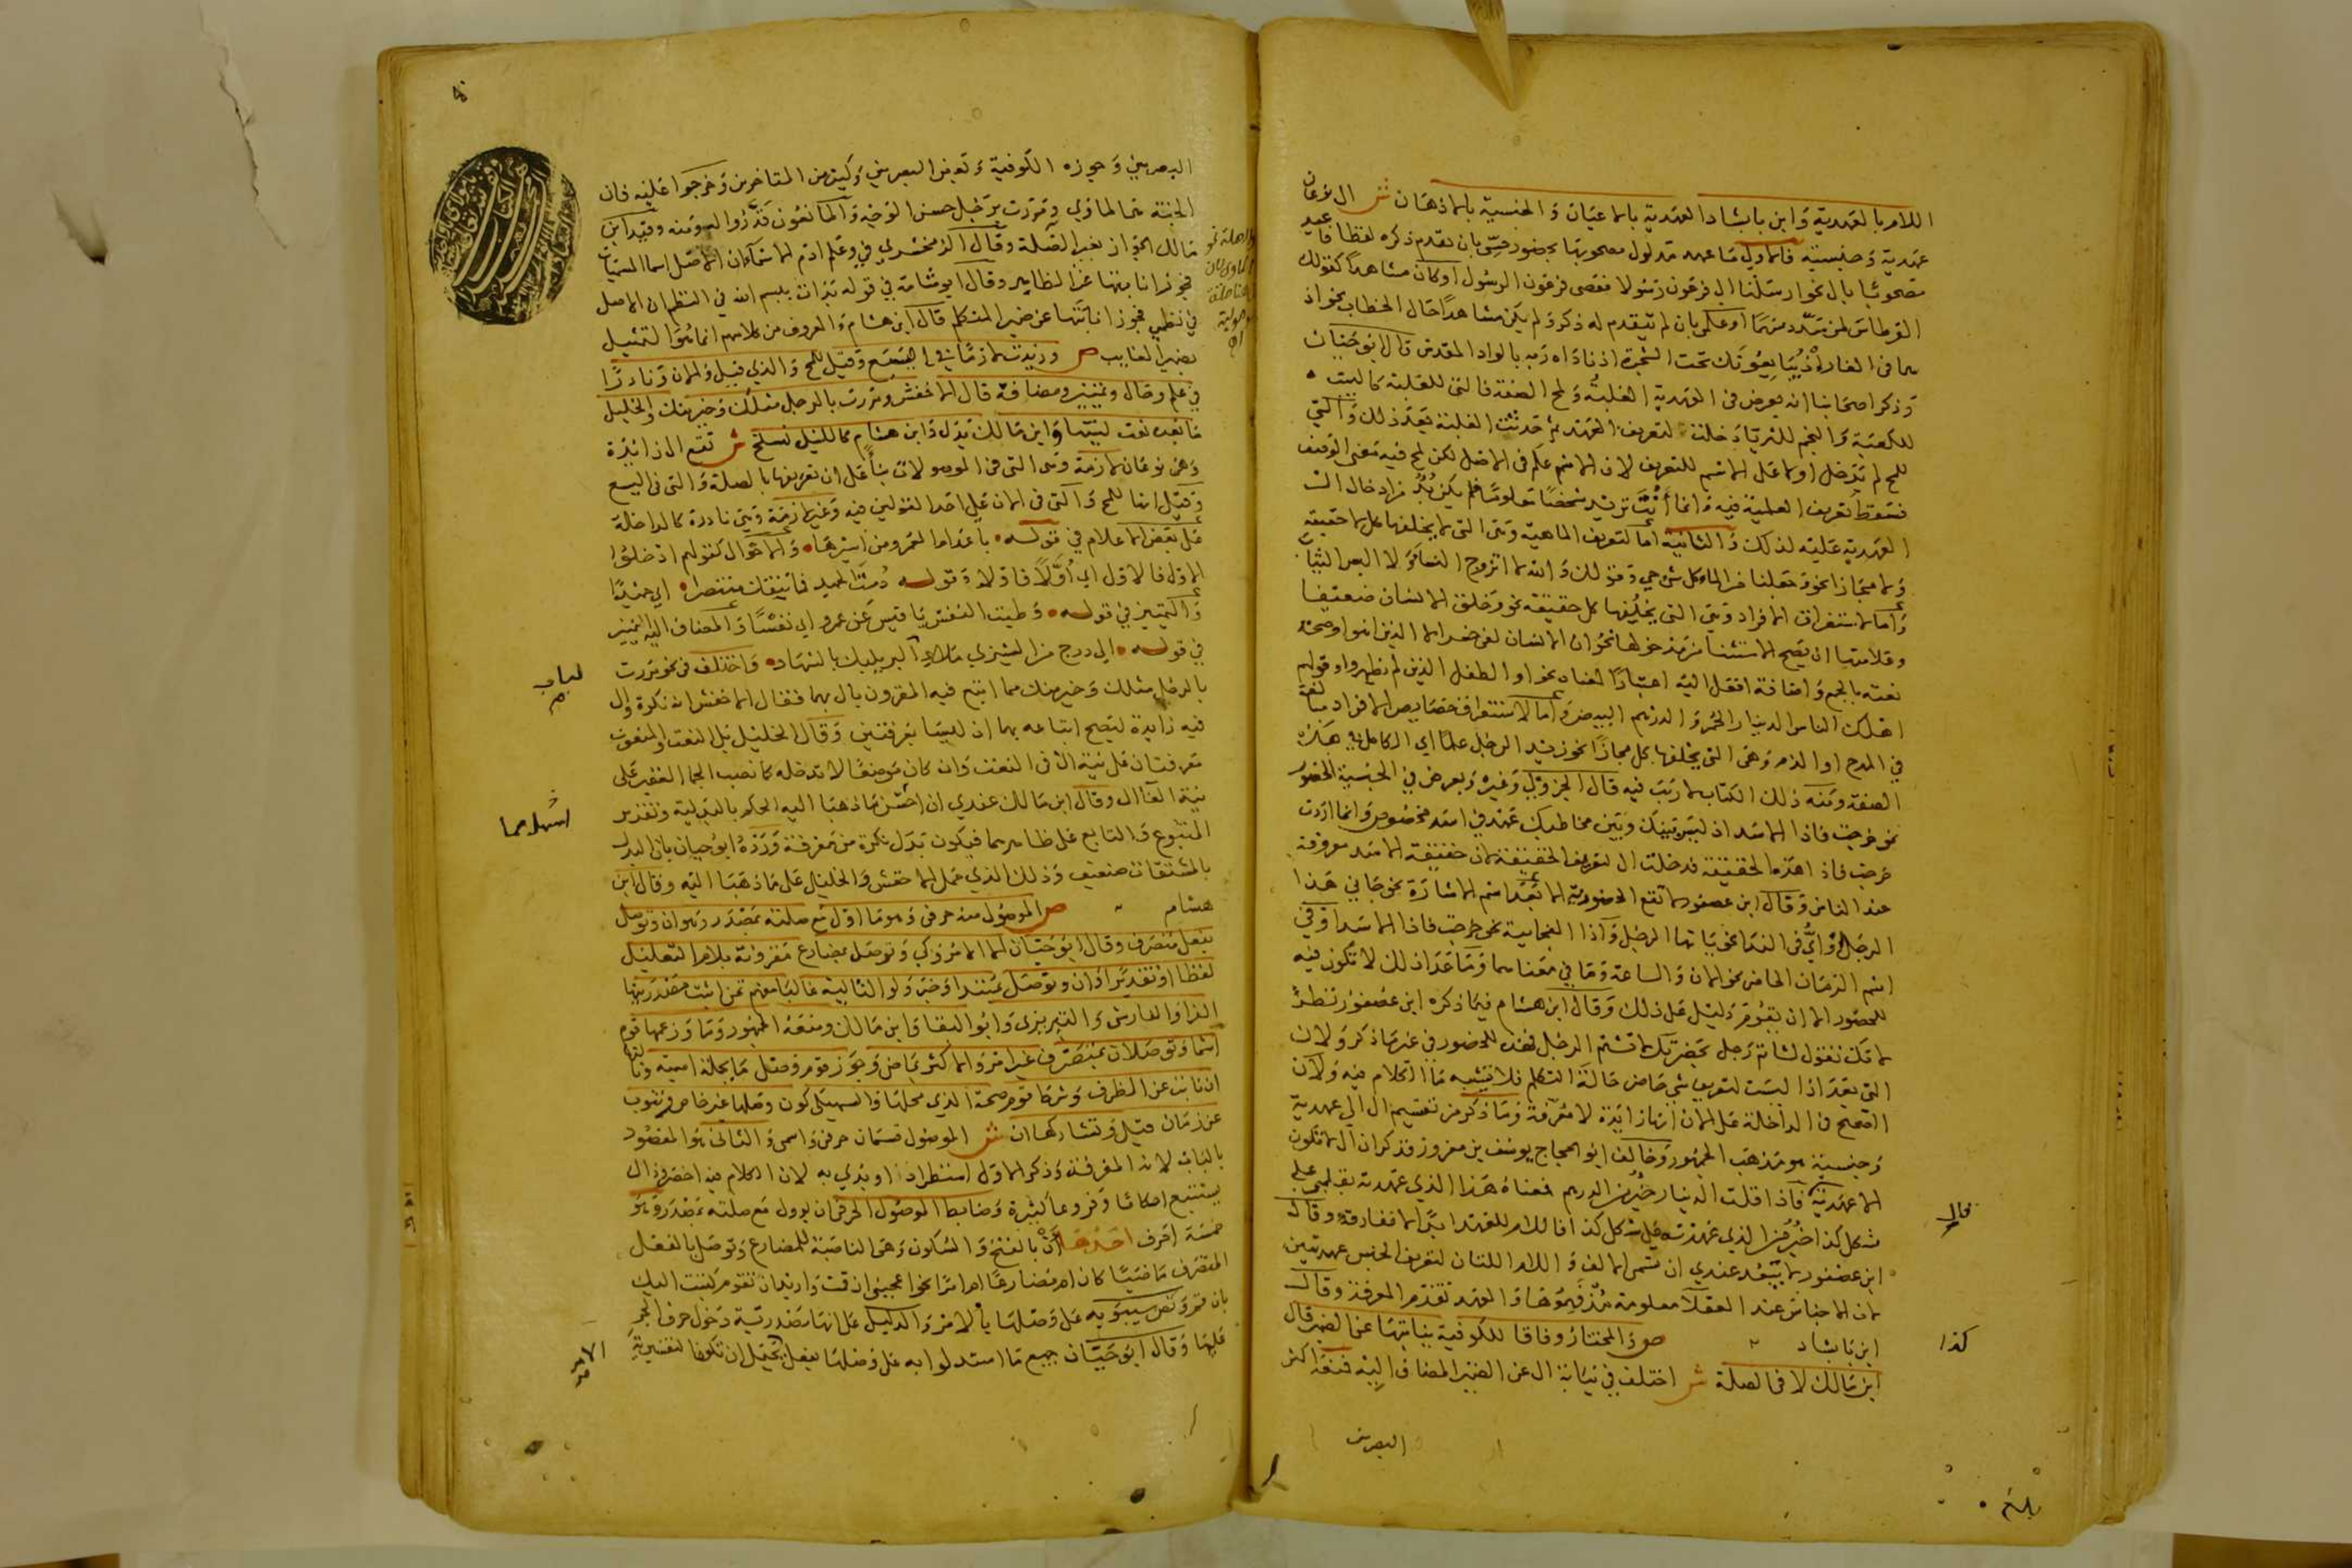 اللام بالعهدية وابن بابشاد العهدية بالاعيان والجنسية بالاذهان ش ال نوعان
عهدية وجنسية فالاولى ما عهد مدلول مصحوبها بحضور حسي بان تقدم ذكره لفظا فاعيد
مصحوبا بال نحو ارسلنا الى فرعون رسولا فعصى فرعون الرسول او كان مشاهدا كقولك
القرطاس لمن سدد سهما او علمي بان لم يتقدم له ذكر ولم يكن مشاهدا حال الخطاب نحو اذ
هما في الغار اذ يبايعونك تحت الشجرة اذ ناداه ربه بالواد المقدس قال ابو حيان
وذكر اصحابنا انه يعرض في العهدية الغلبة ولمح الصفة فالتي للغلبة كالبيت
للكعبة والنجم للثريا دخلت لتعريف العهد ثم حدثت الغلبة بعد ذلك والتي
للمح لم تدخل اولا على الاسم للتعريف لان الاسم علم في الاصل لكن لمح فيه معنى الوصف
فسقط تعريف العلمية فيه وانما تريد شخصا معلوما فلم يكن بد من ادخال ال
العهدية عليه لذلك والثانية اما لتعريف الماهية وهي التي لا يخلفها كل لا حقيقة
ولا مجازا نحو وجعلنا من الماء كل شيء حي وقولك والله لا اتزوج النساء ولا البس الثياب
واما لاستغراق الافراد وهي التي يخلفها كل حقيقة نحو وخلق الانسان ضعيفا
وعلامتها ان يصح الاستثنا من مدخولها نحو ان الانسان لفي خسر الا الذين امنوا وصحة
نعته بالجمع واضافة افعل اليه اعتبارا لمعناه نحو او الطفل الذين لم يظهروا وقولهم
اهلك الناس الدينار الحمر والدرهم البيض واما لاستغراق خصايص الافراد مبالغة
في المدح او الذم وهي التي يخلفها كل مجازا نحو زيد الرجل علما اي الكامل في هذه
الصفة ومنه ذلك الكتاب لا ريب فيه قال الجزولي وغيره ويعرض في الجنسية الحضور
نحو خرجت فاذا الاسد اذ ليس بينك وبين مخاطبك عهد في اسد مخصوص وانما اردت
خرجت فاذا هذه الحقيقة فدخلت ال لتعريف الحقيقة لان حقيقة الاسد معروفة
عند الناس وقال ابن عصفور لا تقع الحضورية الا بعد اسم الاشارة نحو جاني هذا
الرجل واي في الندا نحو يا ايها الرجل واذا الفجائية نحو خرجت فاذا الاسد او في
اسم الزمان الحاضر نحو الان والساعة وما في معناهما وما عدا ذلك لا تكون فيه
للحضور الا ان يقوم دليل على ذلك وقال ابن هشام فيما ذكره ابن عصفور نظر
لانك تقول لشاتم رجل بحضرتك لا تشتم الرجل فهذه للحضور في غير ما ذكر ولان
التي بعد اذا ليست لتعريف شيء حاضر حالة التكلم فلا تشبه ما الكلام فيه ولان
الصحيح في الداخلة على الان انها زائدة لا معرفة وما ذكر من تقسيم ال الى عهدية
وجنسية هو مذهب الجمهور وخالف ابو الحجاج يوسف بن معزوز فذكر ان ال لا تكون
الا عهدية فاذا قلت الدينار خير من الدرهم فمعناه هذا الذي عهدته بقلبي على
شكل كذا خير من الذي عهدته على شكل كذا فاللام للعهد ابدا لا مفارقة وقال
ابن عصفور لا يبعد عندي ان تسمى الالف واللام اللتان لتعريف الجنس عهديتين
لان الاجناس عند العقلا معلومة مذ فهموها والعهد تقدم المعرفة وقال
ابن بابشاد ص والمختار وفاقا للكوفية نيابتها عن الضمير قال
ابن مالك لا في الصلة ش اختلف في نيابة ال عن الضمير المضاف اليه فمنعه اكثر
البصريين
قال
كذا
بلغ
البصريين وجوزه الكوفية وبعض البصريين وكثير من المتاخرين وخرجوا عليه فان
الجنة هي الماوى ومررت برجل حسن الوجه والمانعون قدروا له ومنه وقيد ابن
مالك الجواز بغير الصلة وقال الزمخشري في وعلم ادم الاسماء ان الاصل اسما المسميات
فجوز نيابتها عن الظاهر وقال ابو شامة في قوله بدات ببسم الله في النظم ان الاصل
في نظمي فجوز نيابتها عن ضمير المتكلم قال ابن هشام والمعروف من كلامهم انما هو التمثيل
بضمير الغايب ص وزيدت لازما في اليسع وقيل للمح والذي قيل والان ونادرا
في علم وحال وتمييز ومضافه قال الاخفش ومررت بالرجل مثلك وخير منك والخليل
ما بعده نعت لنيتها وابن مالك بدل وابن هشام كالليل نسلخ ش تقع ال زائدة
وهي نوعان لازمة وهي التي في الموصولات بنا على ان تعريفها بالصلة والتي في اليسع
وقيل انها للمح والتي في الان على احد القولين فيه وغير لازمة وهي نادرة كالداخلة
على بعض الاعلام في قوله باعد ام العمرو من اسيرها والاحوال كقولهم ادخلوا
الاول فالاول اي اولا فاولا وقوله دمت الحميد فما تنفك منتصرا اي حميدا
والتمييز في قوله وطبت النفس يا قيس عن عمرو اي نفسا والمضاف اليه التمييز
في قوله الى ردح من الشيزى ملاء لباب البر يلبك بالشهاد واختلف في نحو مررت
بالرجل مثلك وخير منك مما اتبع فيه المقرون بال بهما فقال الاخفش انه نكرة وال
فيه زايدة ليصح اتباعه بهما اذ ليسا بمعرفتين وقال الخليل بل النعت والمنعوت
معرفتان على نية ال في النعت وان كان موضعا لا تدخله كما نصب الجما الغفير على
نية الغا ال وقال ابن مالك عندي ان اسهل مما ذهبا اليه الحكم بالبدلية وتقدير
المتبوع والتابع على ظاهرهما فيكون بدل نكرة من معرفة ورده ابو حيان بان البدل
بالمشتقات ضعيف وذلك الذي حمل الاخفش والخليل على ما ذهبا اليه وقال ابن
هشام ص الموصول منه حرفي وهو ما اول مع صلته بمصدر وهو ان وتوصل
بفعل متصرف وقال ابو حيان الا الامر وكي وتوصل بمضارع مقرونة بلام التعليل
لفظا او تقديرا وان وتوصل بمبتدا وخبر ولو التالية غالبا مفهم تمن اثبت مصدريتها
الفرا والفارسي والتبريزي وابو البقا وابن مالك ومنعه الجمهور وما وزعمها قوم
اسما وتوصلان بمتصرف غير امر والاكثر بماض وجوز قوم وصل ما بجملة اسمية وثالثها
ان نابت عن الظرف وشرط قوم صحة الذي محلها والسهيلي كون وصلها غير خاص وتنوب
عن زمان قيل وتشاركها ان ش الموصول قسمان حرفي واسمي والثاني هو المقصود
بالباب لانه المعرفة وذكر الاول استطرادا وبدي به لان الكلام فيه اخصر وذاك
يستتبع احكاما وفروعا كثيرة وضابط الموصول الحرفي ان يوول مع صلته بمصدر وهو
خمسة احرف احدها أن بالفتح والسكون وهي الناصبة للمضارع وتوصل بالفعل
المتصرف ماضيا كان او مضارعا او امرا نحو اعجبني ان قمت واريد ان تقوم وكتبت اليك
بان قم ونص سيبويه على وصلها بالامر والدليل على انها مصدرية دخول حرف الجر
عليها وقال ابو حيان جميع ما استدلوا به على وصلها بفعل الامر يحتمل ان تكون التفسيرية
لباب
اسهل مما
الامر